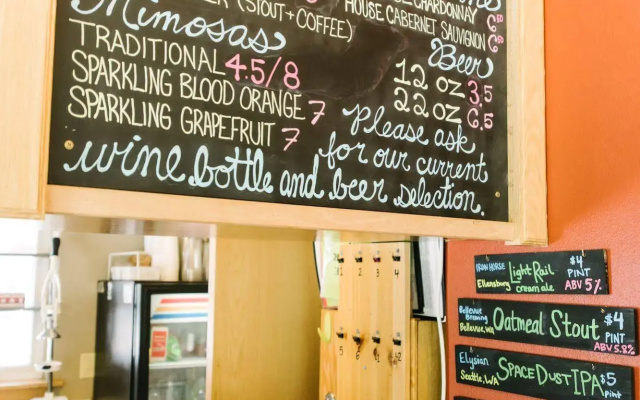 (STOUT+COFFEE)
HOUSE CHARDONNAY 6.50
HOUSE CABERNET SAUVIGNON 6.50
Mimosas
TRADITIONAL 4.5/8
SPARKLING BLOOD ORANGE 7
SPARKLING GRAPEFRUIT 7
Beer
12 OZ 3.5
22 OZ 6.5
Please ask
for our current
wine bottle and beer selection.
IRON HORSE
Ellensburg
Light Rail
cream ale
$4
PINT
ABV 5%
Bellevue
Brewing
Bellevue, WA
Oatmeal Stout
$4
PINT
ABV 5.8%
Elysian
Seattle, WA
SPACE DUST IPA
$5
pint
1 2 3 4